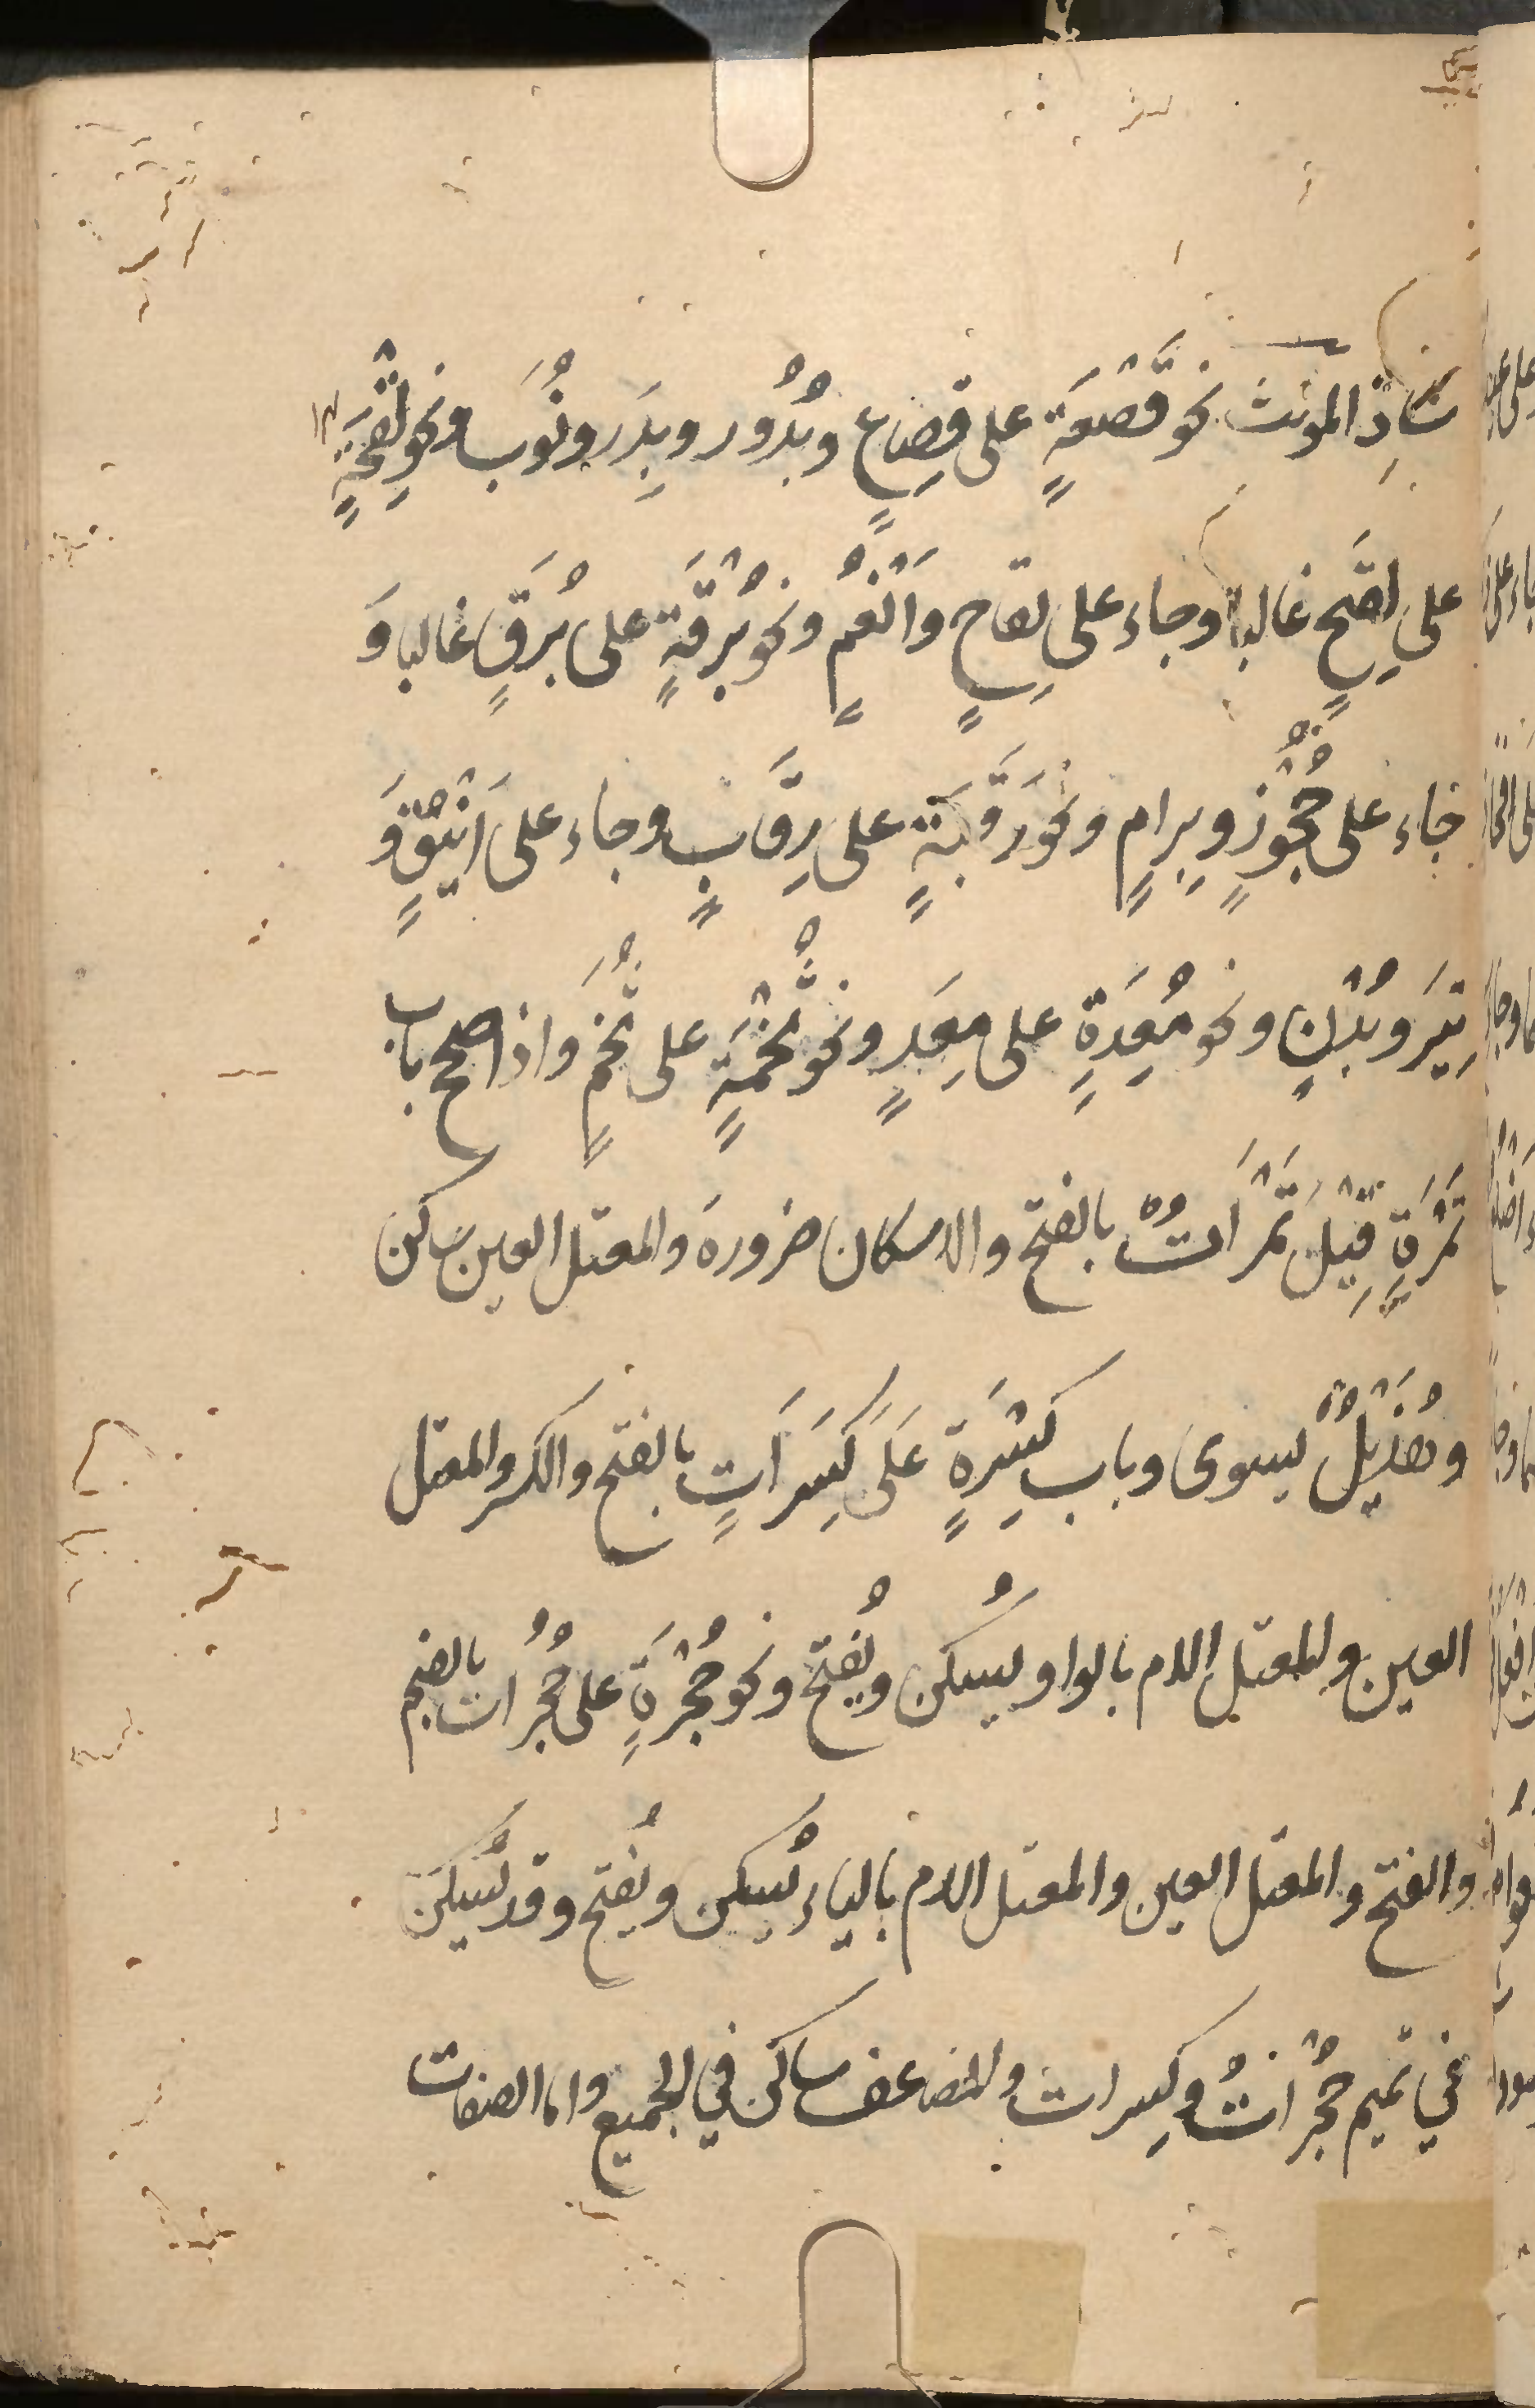 شاذ المونث نحو قَصْعَةٍ على قِصَاعٍ وبُدُور وبِدَر ونُوَب ونحو لِقْحَةٍ
على لِقَحٍ غالبا وجاء على لِقاحٍ وَاَنْعُمٍ ونحو بُرْقَةٍ على بُرَقٍ غالبا وَ
جاء على حُجُوزٍ وبِرامٍ ونحو رَقَبَةٍ على رِقَابٍ وجاء على اَيْنُقٍ وَ
تِيَرَ وبُدْنٍ ونحو مَعِدَةٍ على مِعَدٍ ونحو تُخْمَةٍ على تُخَمٍ واذا صحح باب
تَمْرَةٍ قِيْلَ تَمَرَاتٌ بالفتح والاسكان ضرورة والمعتل العين ساكن
وهُذَيْلٌ يسوى وباب كِسْرَةٍ عَلَى كِسَرَاتٍ بالفتح والكسر والمعتل
العين والمعتل اللام بالواو يُسكن ويُفتح ونحو حُجْرَةٍ على حُجُرات بالضم
والفتح والمعتل العين والمعتل اللام بالياء يُسكن ويُفتح وقد تُسكن
في تميم حُجْراتٌ وكِسرات والمضاعف ساكن في الجميع واما الصفات